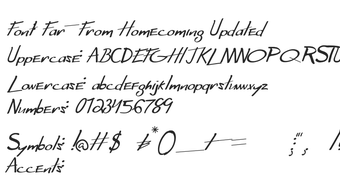 Font Far From Homecoming Updated
Uppercase: ABCDEFGHIJKLMNOPQRSTU
Lowercase: abcdefghijklmnopqrstuvwxyz
Numbers: 0123456789
Symbols: !@#$
Accents: